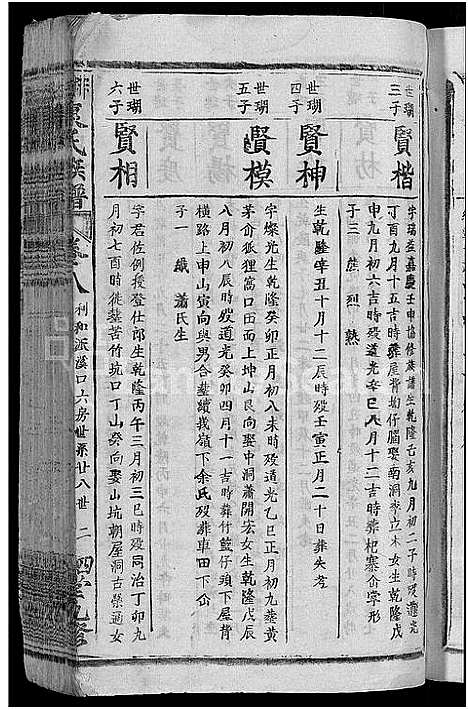 世瑚三子
賢楷
字瑞益嘉慶壬申協修族譜生乾隆己亥九月初二子時歿道光
丁酉九月十五吉時葬屋背坳仔腦娶南洞麥立木女生乾隆戊
申九月初六吉時歿道光辛巳八月十二吉時葬杞寨介掌形
子三 熊 烈 熟
世瑚四子
賢神
生乾隆辛丑十月十二辰時歿壬寅正月二十日葬失考
世瑚五子
賢模
字燦光生乾隆癸卯正月初八未時歿道光乙巳正月初九葬黃
茅㘭狐狸窩口田面上坤山艮向娶中洞蕭開宏女生乾隆戊辰
八月初八辰時歿道光癸卯四月十一吉時葬竹籃仔頭下屋背
橫路上申山寅向與男合葬續娥嶺下余氏歿葬車田下㘭
子一 織 蕭氏生
世瑚六子
賢相
字君佐例授登仕郎生乾隆丙午三月初三巳時歿同治丁卯九
月初七酉時葬苦竹坑口丁山癸向娶山坑朝屋洞古榮通女
氏族譜
卷八
利和派溪口六房世系廿八世
二